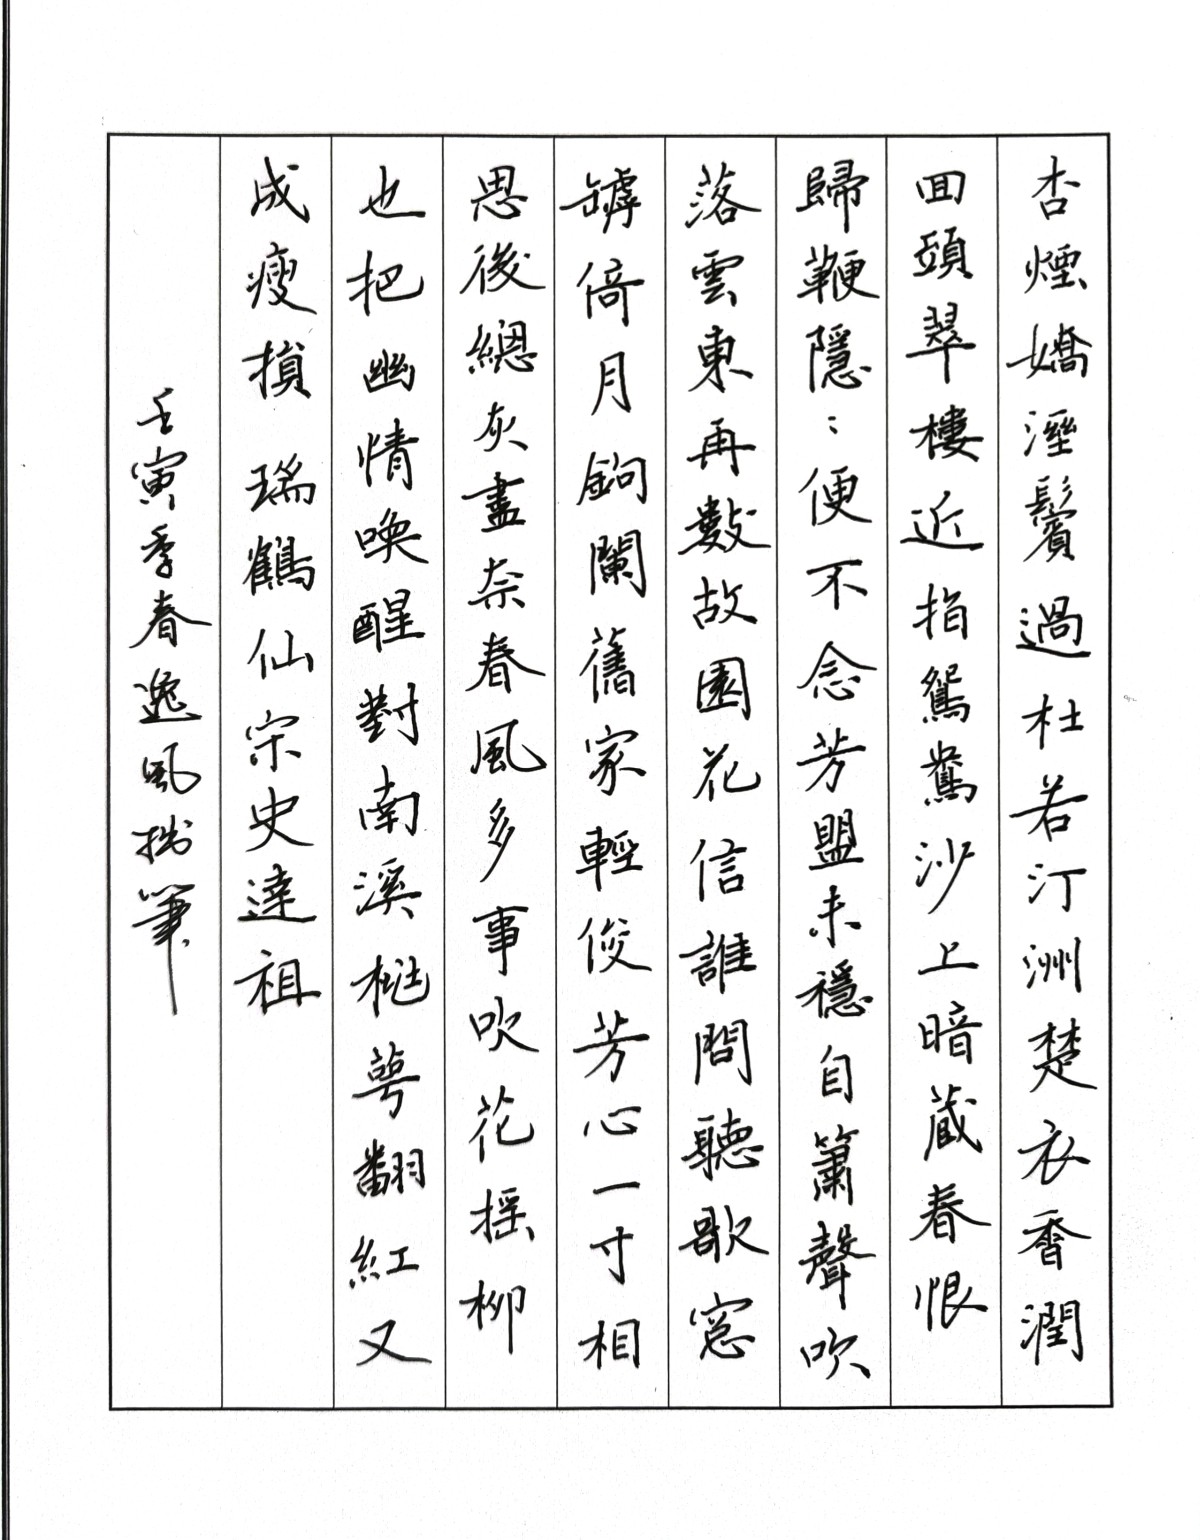 杏煙嬌溼鬢過杜若汀洲楚衣香潤
回頭翠樓近指鴛鴦沙上暗藏春恨
歸鞭隱:便不念芳盟未穩自簫聲吹
落雲東再數故園花信誰問聽歌窓
罅倚月鉤闌舊家輕俊芳心一寸相
思後總灰盡奈春風多事吹花搖柳
也把幽情喚醒對南溪桃萼翻紅又
成瘦損瑞鶴仙宋史達祖
壬寅季春逸風拙筆